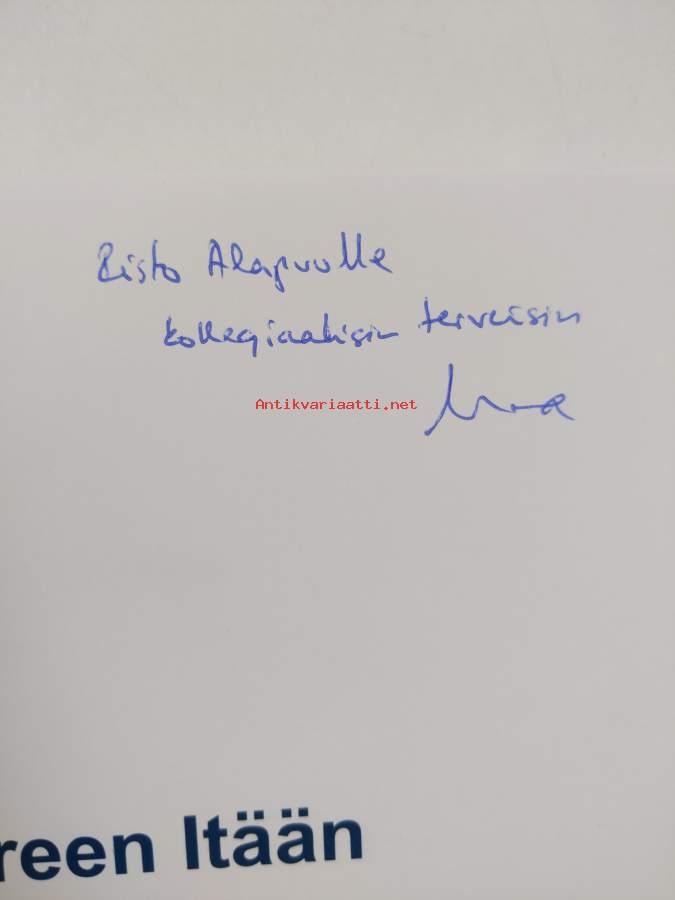 Risto Alapuolle
kollegiaalisin terveisin
Antikvariaatti.net
reen Itään